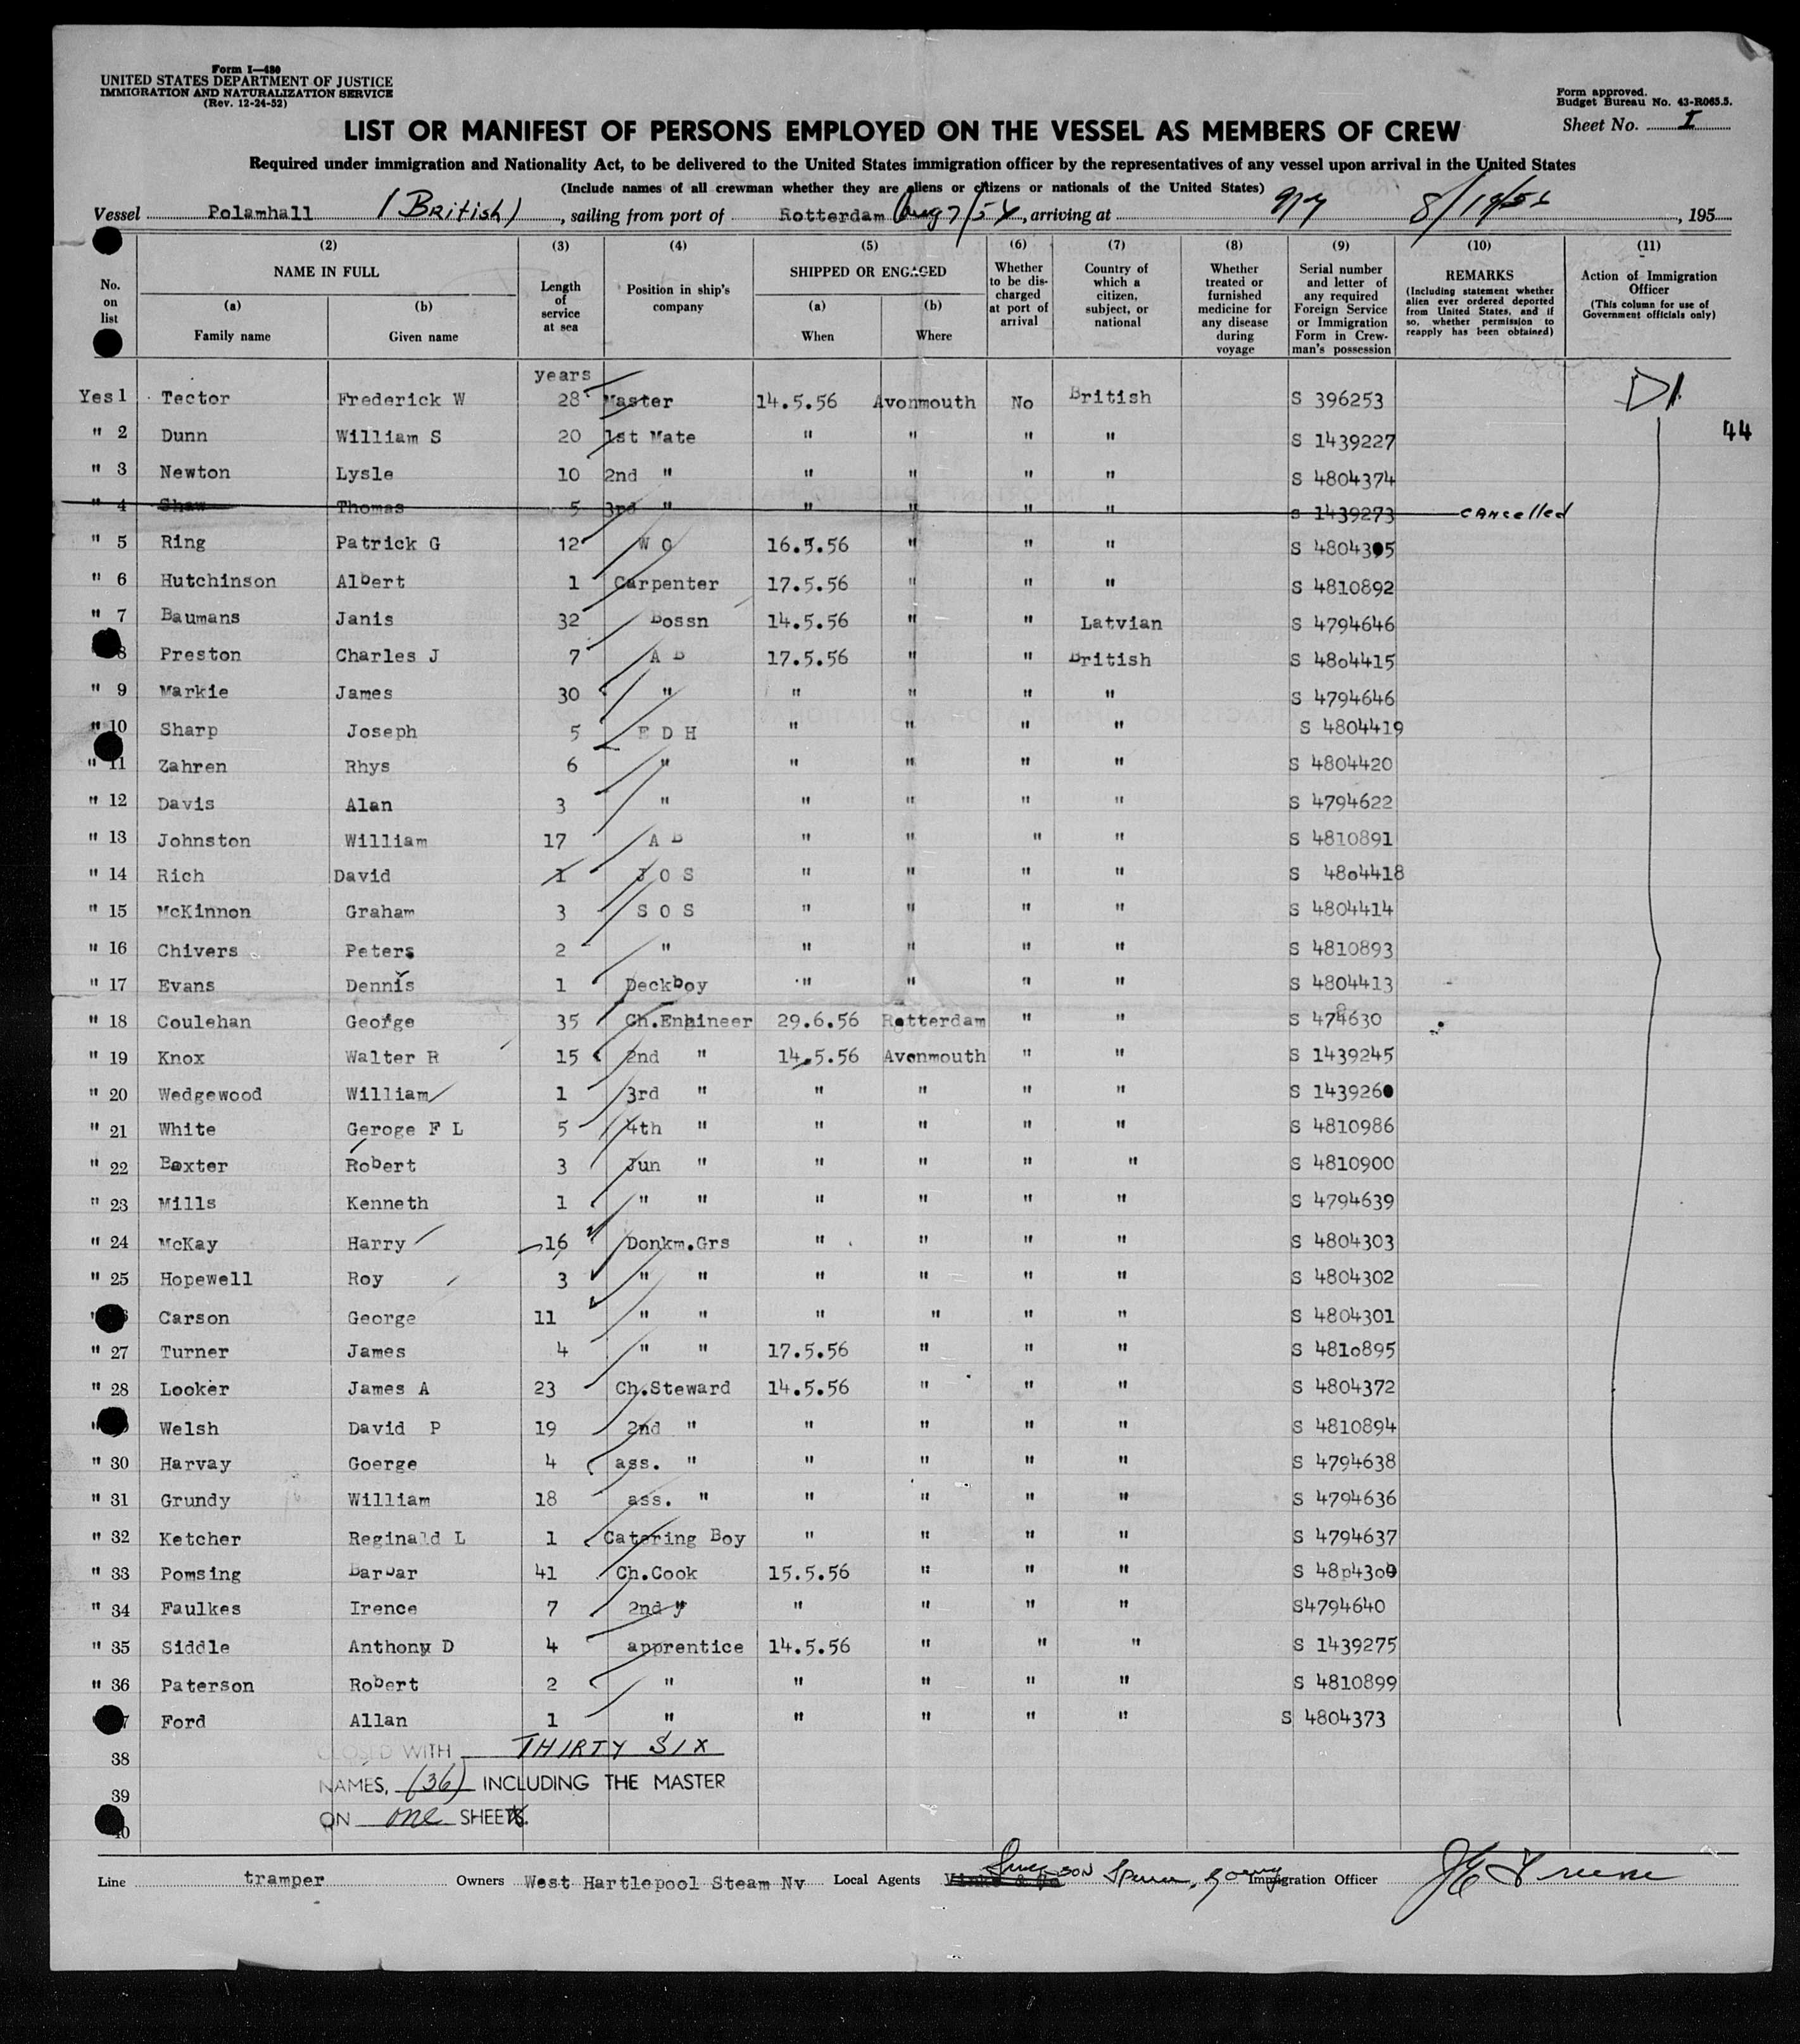 Form I—480
UNITED STATES DEPARTMENT OF JUSTICE
IMMIGRATION AND NATURALIZATION SERVICE
(Rev. 12-24-52)
Form approved.
Budget Bureau No. 43-R065.5.
Sheet No. I
LIST OR MANIFEST OF PERSONS EMPLOYED ON THE VESSEL AS MEMBERS OF CREW
Required under immigration and Nationality Act, to be delivered to the United States immigration officer by the representatives of any vessel upon arrival in the United States
(Include names of all crewman whether they are aliens or citizens or nationals of the United States)
Vessel Polamhall (British), sailing from port of Rotterdam Aug 7/56, arriving at 8/19/56, 195
(2) (3) (4) (5) (6) (7) (8) (9) (10) (11)
No. on list
NAME IN FULL
(a) Family name
(b) Given name
Length of service at sea
Position in ship's company
SHIPPED OR ENGAGED
(a) When
(b) Where
Whether to be discharged at port of arrival
Country of which a citizen, subject, or national
Whether treated or furnished medicine for any disease during voyage
Serial number and letter of any required Foreign Service or Immigration Form in Crewman's possession
REMARKS
(Including statement whether alien ever ordered deported from United States, and if so, whether permission to reapply has been obtained)
Action of Immigration Officer
(This column for use of Government officials only)
years
Yes 1 Tector Frederick W 28 Master 14.5.56 Avonmouth No British S 396253 D1
" 2 Dunn William S 20 1st Mate " " " " S 1439227 44
" 3 Newton Lysle 10 2nd " " " " " S 4804374
" 4 Shaw Thomas 5 3rd " " " " " S 1439273 cancelled
" 5 Ring Patrick G 12 W O 16.5.56 " " " S 4804395
" 6 Hutchinson Albert 1 Carpenter 17.5.56 " " " S 4810892
" 7 Baumans Janis 32 Bossn 14.5.56 " " Latvian S 4794646
8 Preston Charles J 7 A B 17.5.56 " " British S 48o4415
" 9 Markie James 30 " " " " " S 4794646
" 10 Sharp Joseph 5 E D H " " " " S 4804419
" 11 Zahren Rhys 6 " " " " " S 4804420
" 12 Davis Alan 3 " " " " " S 4794622
" 13 Johnston William 17 A B " " " " S 4810891
" 14 Rich David 1 J O S " " " " S 48o4418
" 15 McKinnon Graham 3 S O S " " " " S 4804414
" 16 Chivers Peters 2 " " " " " S 4810893
" 17 Evans Dennis 1 Deckboy " " " " S 4804413
" 18 Coulehan George 35 Ch.Enhineer 29.6.56 Rotterdam " " S 474630
" 19 Knox Walter R 15 2nd " 14.5.56 Avonmouth " " S 1439245
" 20 Wedgewood William 1 3rd " " " " " S 1439260
" 21 White Geroge F L 5 4th " " " " " S 4810986
" 22 Baxter Robert 3 Jun " " " " " S 4810900
" 23 Mills Kenneth 1 " " " " " " S 4794639
" 24 McKay Harry 16 Donkm.Grs " " " " S 4804303
" 25 Hopewell Roy 3 " " " " " " S 4804302
Carson George 11 " " " " " " S 4804301
" 27 Turner James 4 " " 17.5.56 " " " S 4810895
" 28 Looker James A 23 Ch.Steward 14.5.56 " " " S 4804372
" Welsh David P 19 2nd " " " " " S 4810894
" 30 Harvay Goerge 4 ass. " " " " " S 4794638
" 31 Grundy William 18 ass. " " " " " S 4794636
" 32 Ketcher Reginald L 1 Catering Boy " " " " S 4794637
" 33 Pomsing Barbar 41 Ch.Cook 15.5.56 " " " S 48p4300
" 34 Faulkes Irence 7 2nd " " " " " S4794640
" 35 Siddle Anthony D 4 apprentice 14.5.56 " " " S 1439275
" 36 Paterson Robert 2 " " " " " S 4810899
Ford Allan 1 " " " " " S 4804373
38 CLOSED WITH THIRTY SIX
39 NAMES, (36) INCLUDING THE MASTER
40 ON one SHEET
Line tramper Owners West Hartlepool Steam Nv Local Agents Immigration Officer